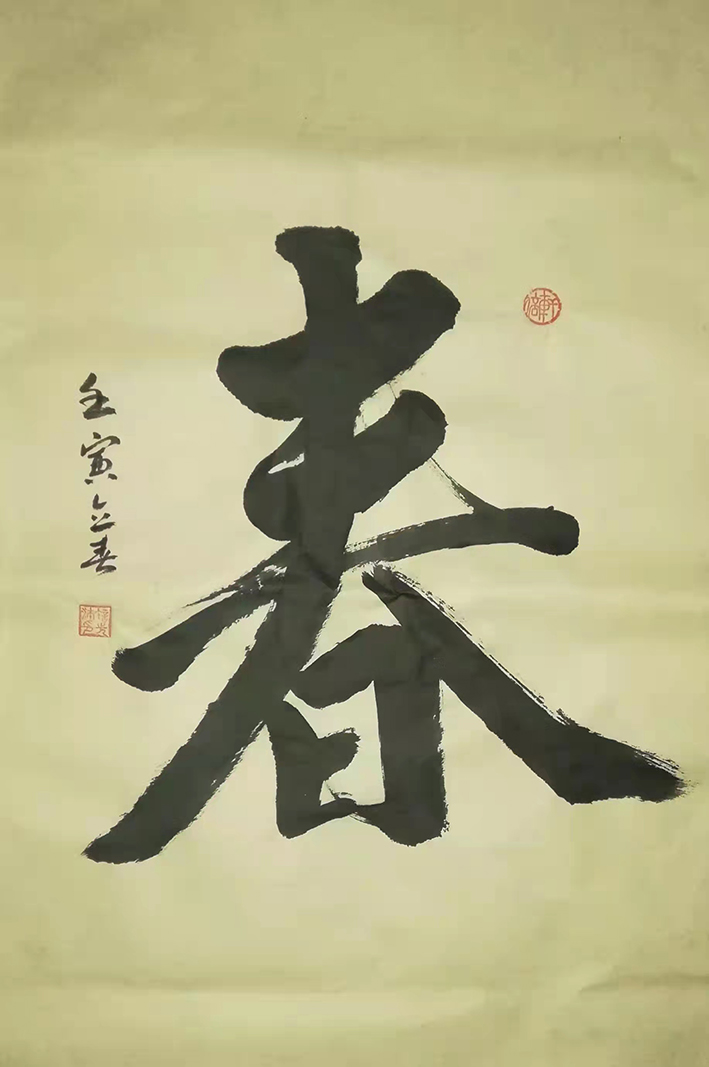 春
壬寅立春